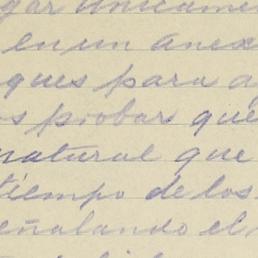 gar únicame
en un anex
ques para a
os probar que
natural que
tiempo de los
eñalando el